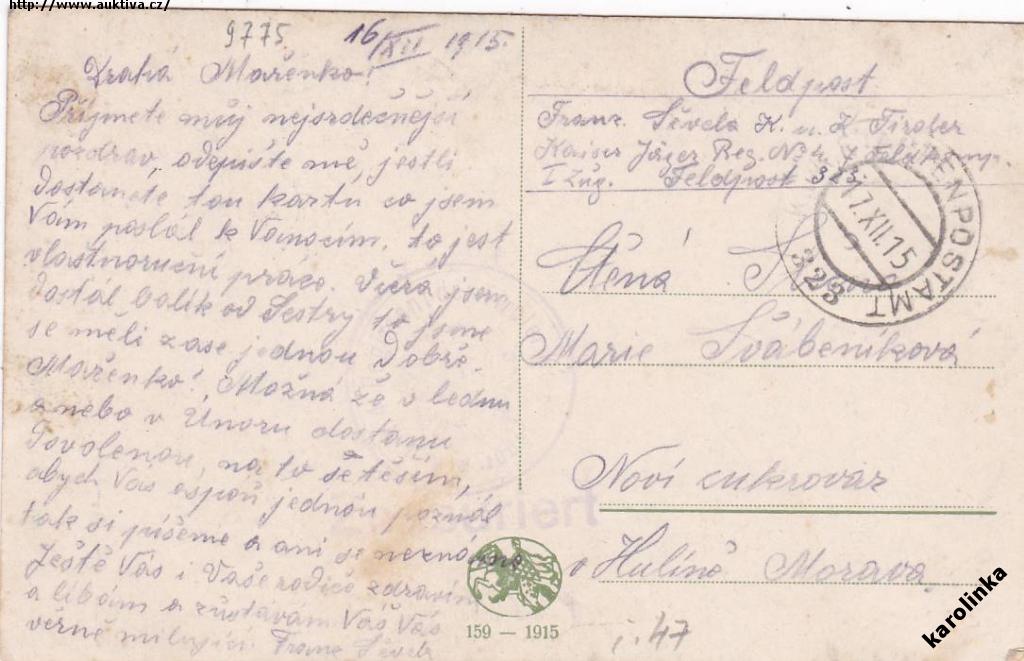 http://www.auktiva.cz/
9775
16/XII 1915.
Drahá Mařenko!
Příjmete můj nejsrdečnější
pozdrav, odepište mě, jestli
dostanete tou kartu co jsem
Vám poslál k Vánocím, to jest
vlastnoruční práce. Včera jsem
dostál balík od Sestry to jsme
se měli zase jednou dobře.
Mařenko! Možná že v lednu
anebo v Únoru dostanu
Dovolenou, na to se těším,
abych Vás aspoň jednou poznál
tak si píšeme a ani se neznáme
Ještě Vás i Vaše rodiče zdravím
a líbám a zůstávám Váš Vás
věrně milující Franc Ševela
Feldpost
Franz. Ševela K. u. K. Tiroler
Kaiser Jäger Reg. No 4, 7 Feldkomp.
I Zug. Feldpost 323.
ENPOSTAMT
17.XII.15
323
Ctěná
Marie Švábeníková
Noví cukrovar
v Hulíně Morava
159 — 1915
j. 47
karolinka